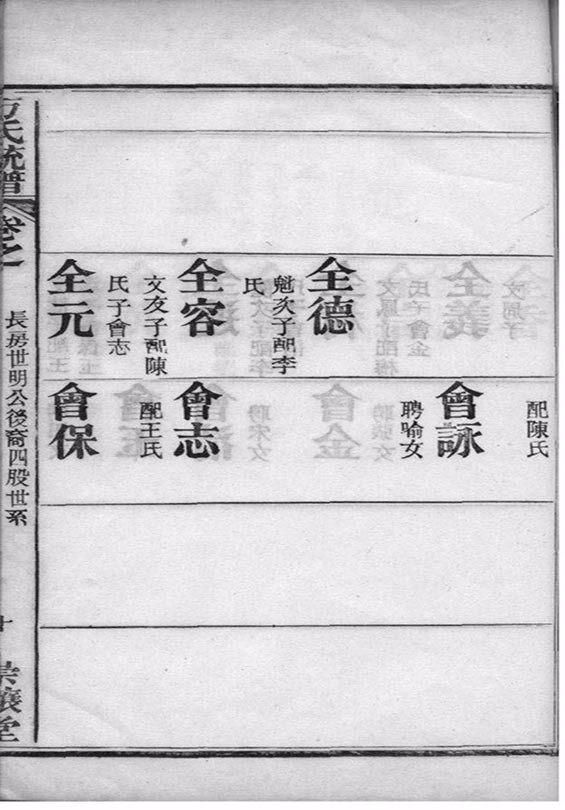 全德
魁次子配李
氏
全容
文友子配陳
氏子會志
全元
配陳氏
會詠
聘喻女
會志
配王氏
會保
氏統譜
卷之一
長房世明公後裔四股世系
十
堂